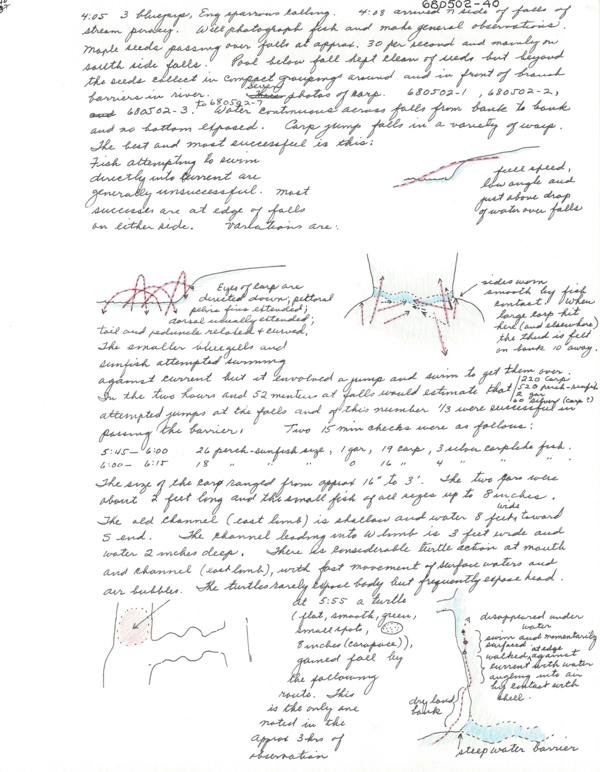 680502-40
4:05 3 bluejays, Eng sparrows calling. 4:08 arrived N side of falls of
stream perday. Will photograph fish and make general observations.
Maple seeds passing over falls at approx. 30 per second and mainly on
south side falls. Pool below fall kept clean of seeds but beyond
the seeds collect in compact groupings around and in front of branch
barriers in river. Seven photos of carp. 680502-1, 680502-2,
680502-3. to 680502-7 Water continuous across falls from bank to bank
and no bottom exposed. Carp jump falls in a variety of ways.
The best and most successful is this:
Fish attempting to swim
directly into current are
generally unsuccessful. Most
successes are at edge of falls
on either side. Variations are:
full speed,
low angle and
just above drop
of water over falls
Eyes of carp are
directed down; pectoral
pelvic fins extended;
dorsal usually extended;
tail and peduncle relaxed & curved.
The smaller bluegills and
sunfish attempted swimming
against current but it involved a jump and swim to get them over.
sides worn
smooth by fish
contact. When
large carp hit
here (and elsewhere)
the thud is felt
on bank 10 away.
In the two hours and 52 minutes at falls would estimate that
220 carp
520 perch-sunfish
2 gar
60 silvery (carp?)
attempted jumps at the falls and of this number 1/3 were successful in
passing the barrier. Two 15 min checks were as follows:
5:45-6:00 26 perch-sunfish size, 1 gar, 19 carp, 3 silver carplike fish.
6:00-6:15 18 " " " 0 16 " 4 " " "
The size of the carp ranged from approx 16" to 3'. The two gars were
about 2 feet long and the small fish of all sizes up to 8 inches.
The old channel (east limb) is shallow and water 8 feet wide toward
S end. The channel leading into W limb is 3 feet wide and
water 2 inches deep. There is considerable turtle action at mouth
and channel (east limb), with fast movement of surface waters and
air bubbles. The turtles rarely expose body but frequently expose head.
At 5:55 a turtle
(flat, smooth, green,
small spots,
8 inches (carapace)),
gained fall by
the following
route. This
is the only one
noted in the
approx 3 hrs of
observation
disappeared under
water
swim and momentarily
surfaced at edge
walked against
current with water
angling into air
by contact with
shell.
dry land
bank
steep water barrier